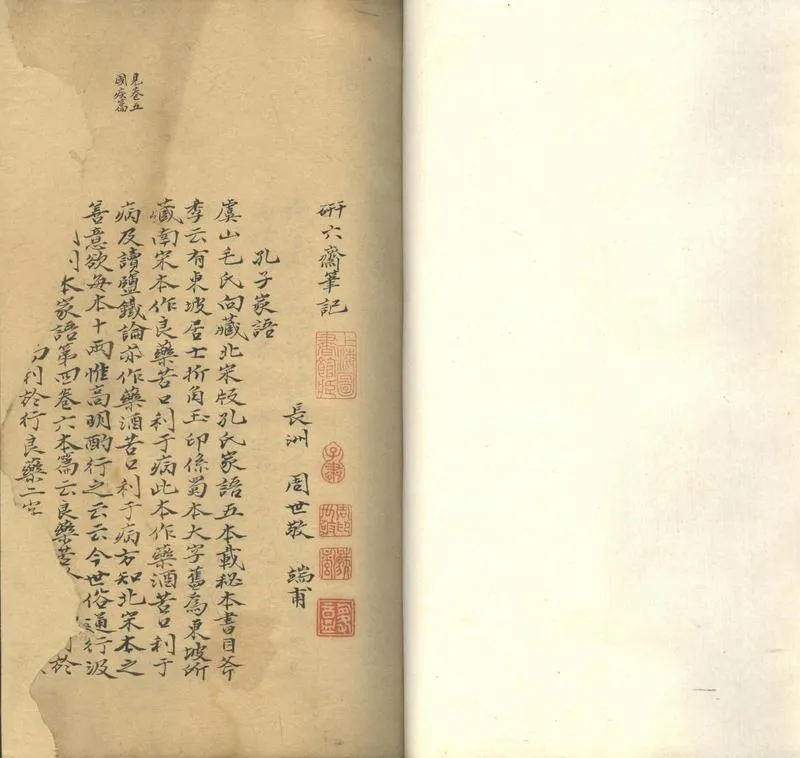 研六齋筆記
上海圖書館藏
長洲 周世敬 端甫
周印世敬
孔子家語
虞山毛氏向藏北宋版孔氏家語五本載秘本書目斧
季云有東坡居士折角玉印係蜀本大字舊為東坡所
藏南宋本作良藥苦口利于病此本作藥酒苦口利于
病及讀鹽鐵論亦作藥酒苦口利于病方知北宋本之
見卷五
國疾篇
善意欲每本十兩惟高明酌行之云云今世俗通行汲
本家語第四卷六本篇云良藥苦 於
利於行良藥二